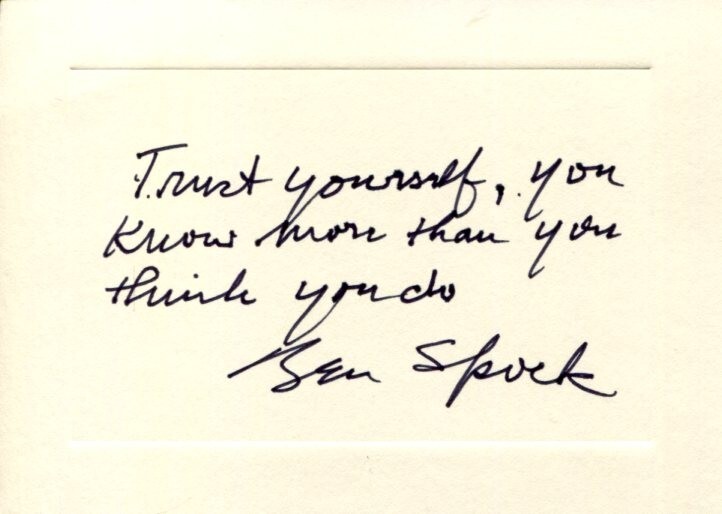 Trust yourself, you
know more than you
think you do
Ben Spock